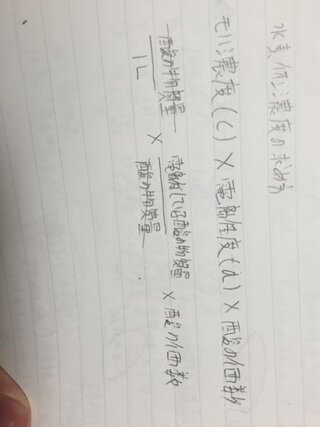 水素イオン濃度の求め方
モル濃度(C) × 電離度(α) × 酸の価数
酸の物質量 / 1L × 電離している酸の物質量 / 酸の物質量 × 酸の価数